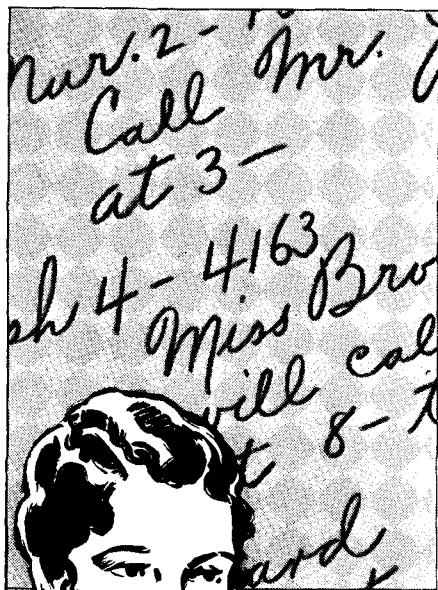 Mar. 2-
Call Mr.
at 3-
ph 4-4163
Miss Bro
will cal
t 8-t
ard